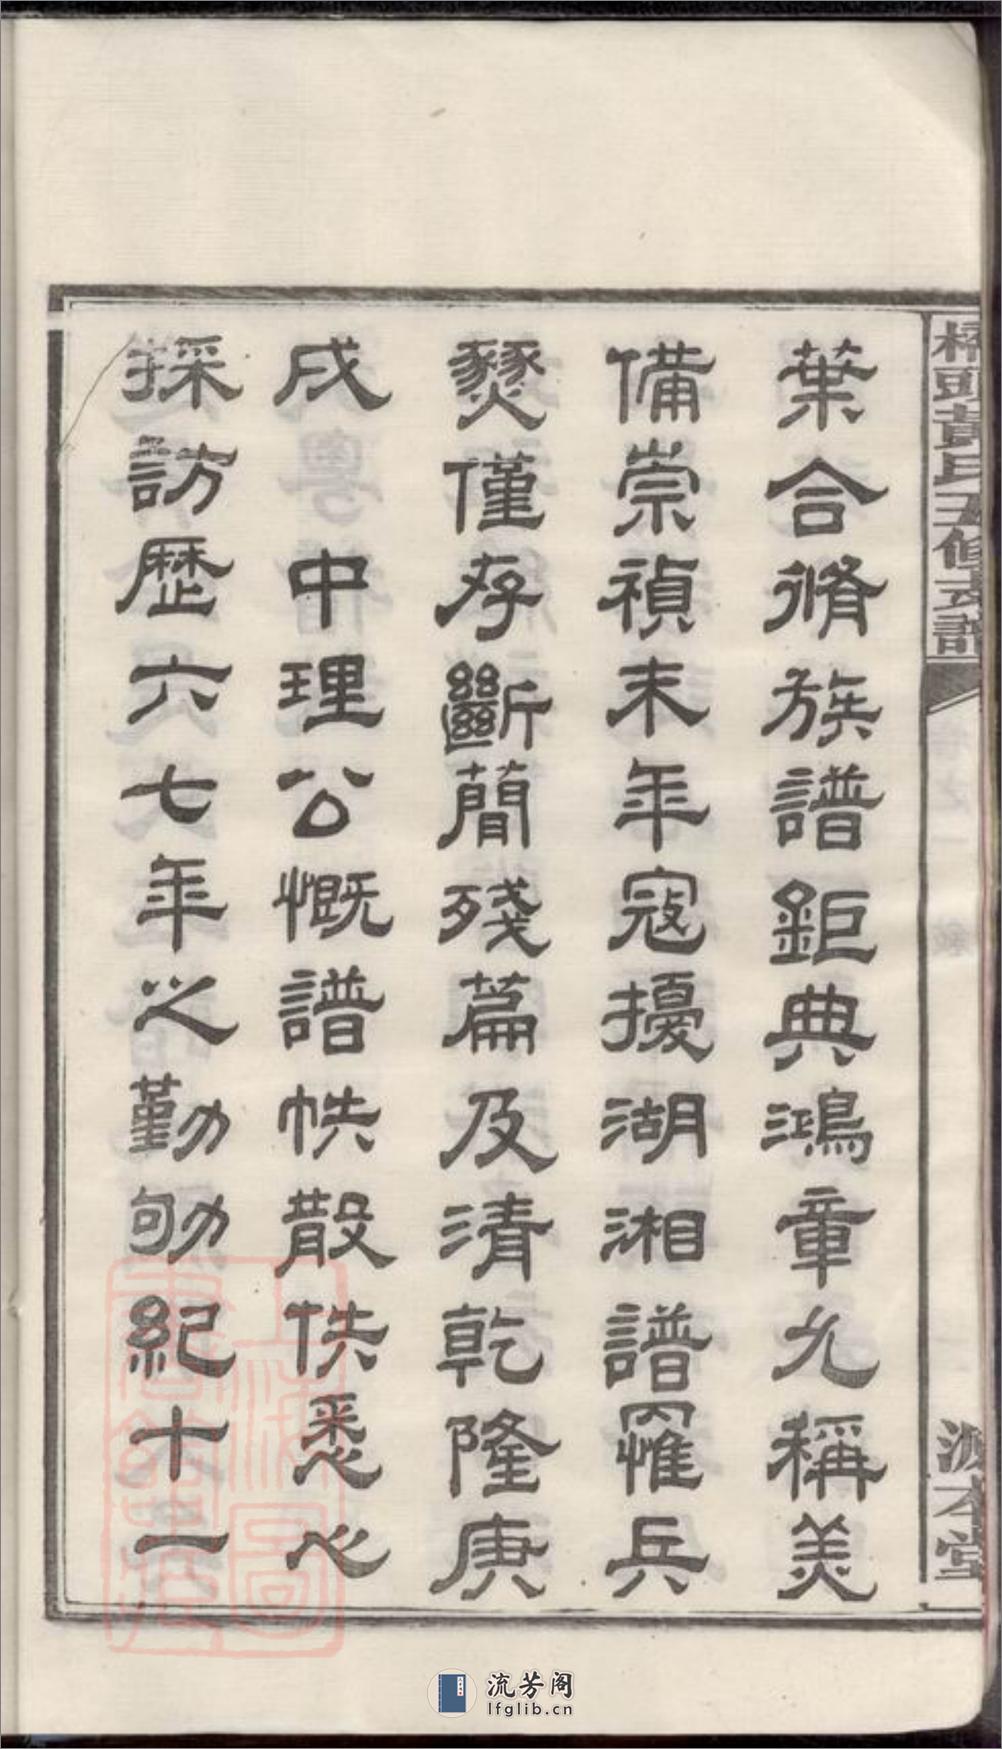 葉合脩族譜鉅典鴻章允稱美
備崇禎末年寇擾湖湘譜罹兵
燹僅存斷簡殘篇及清乾隆庚
戌 中理公慨譜帙散佚悉心
採訪歷六七年之勤劬紀十一
頭黃氏五修支譜
源本堂
上海圖書館藏
流芳阁
lfglib.cn